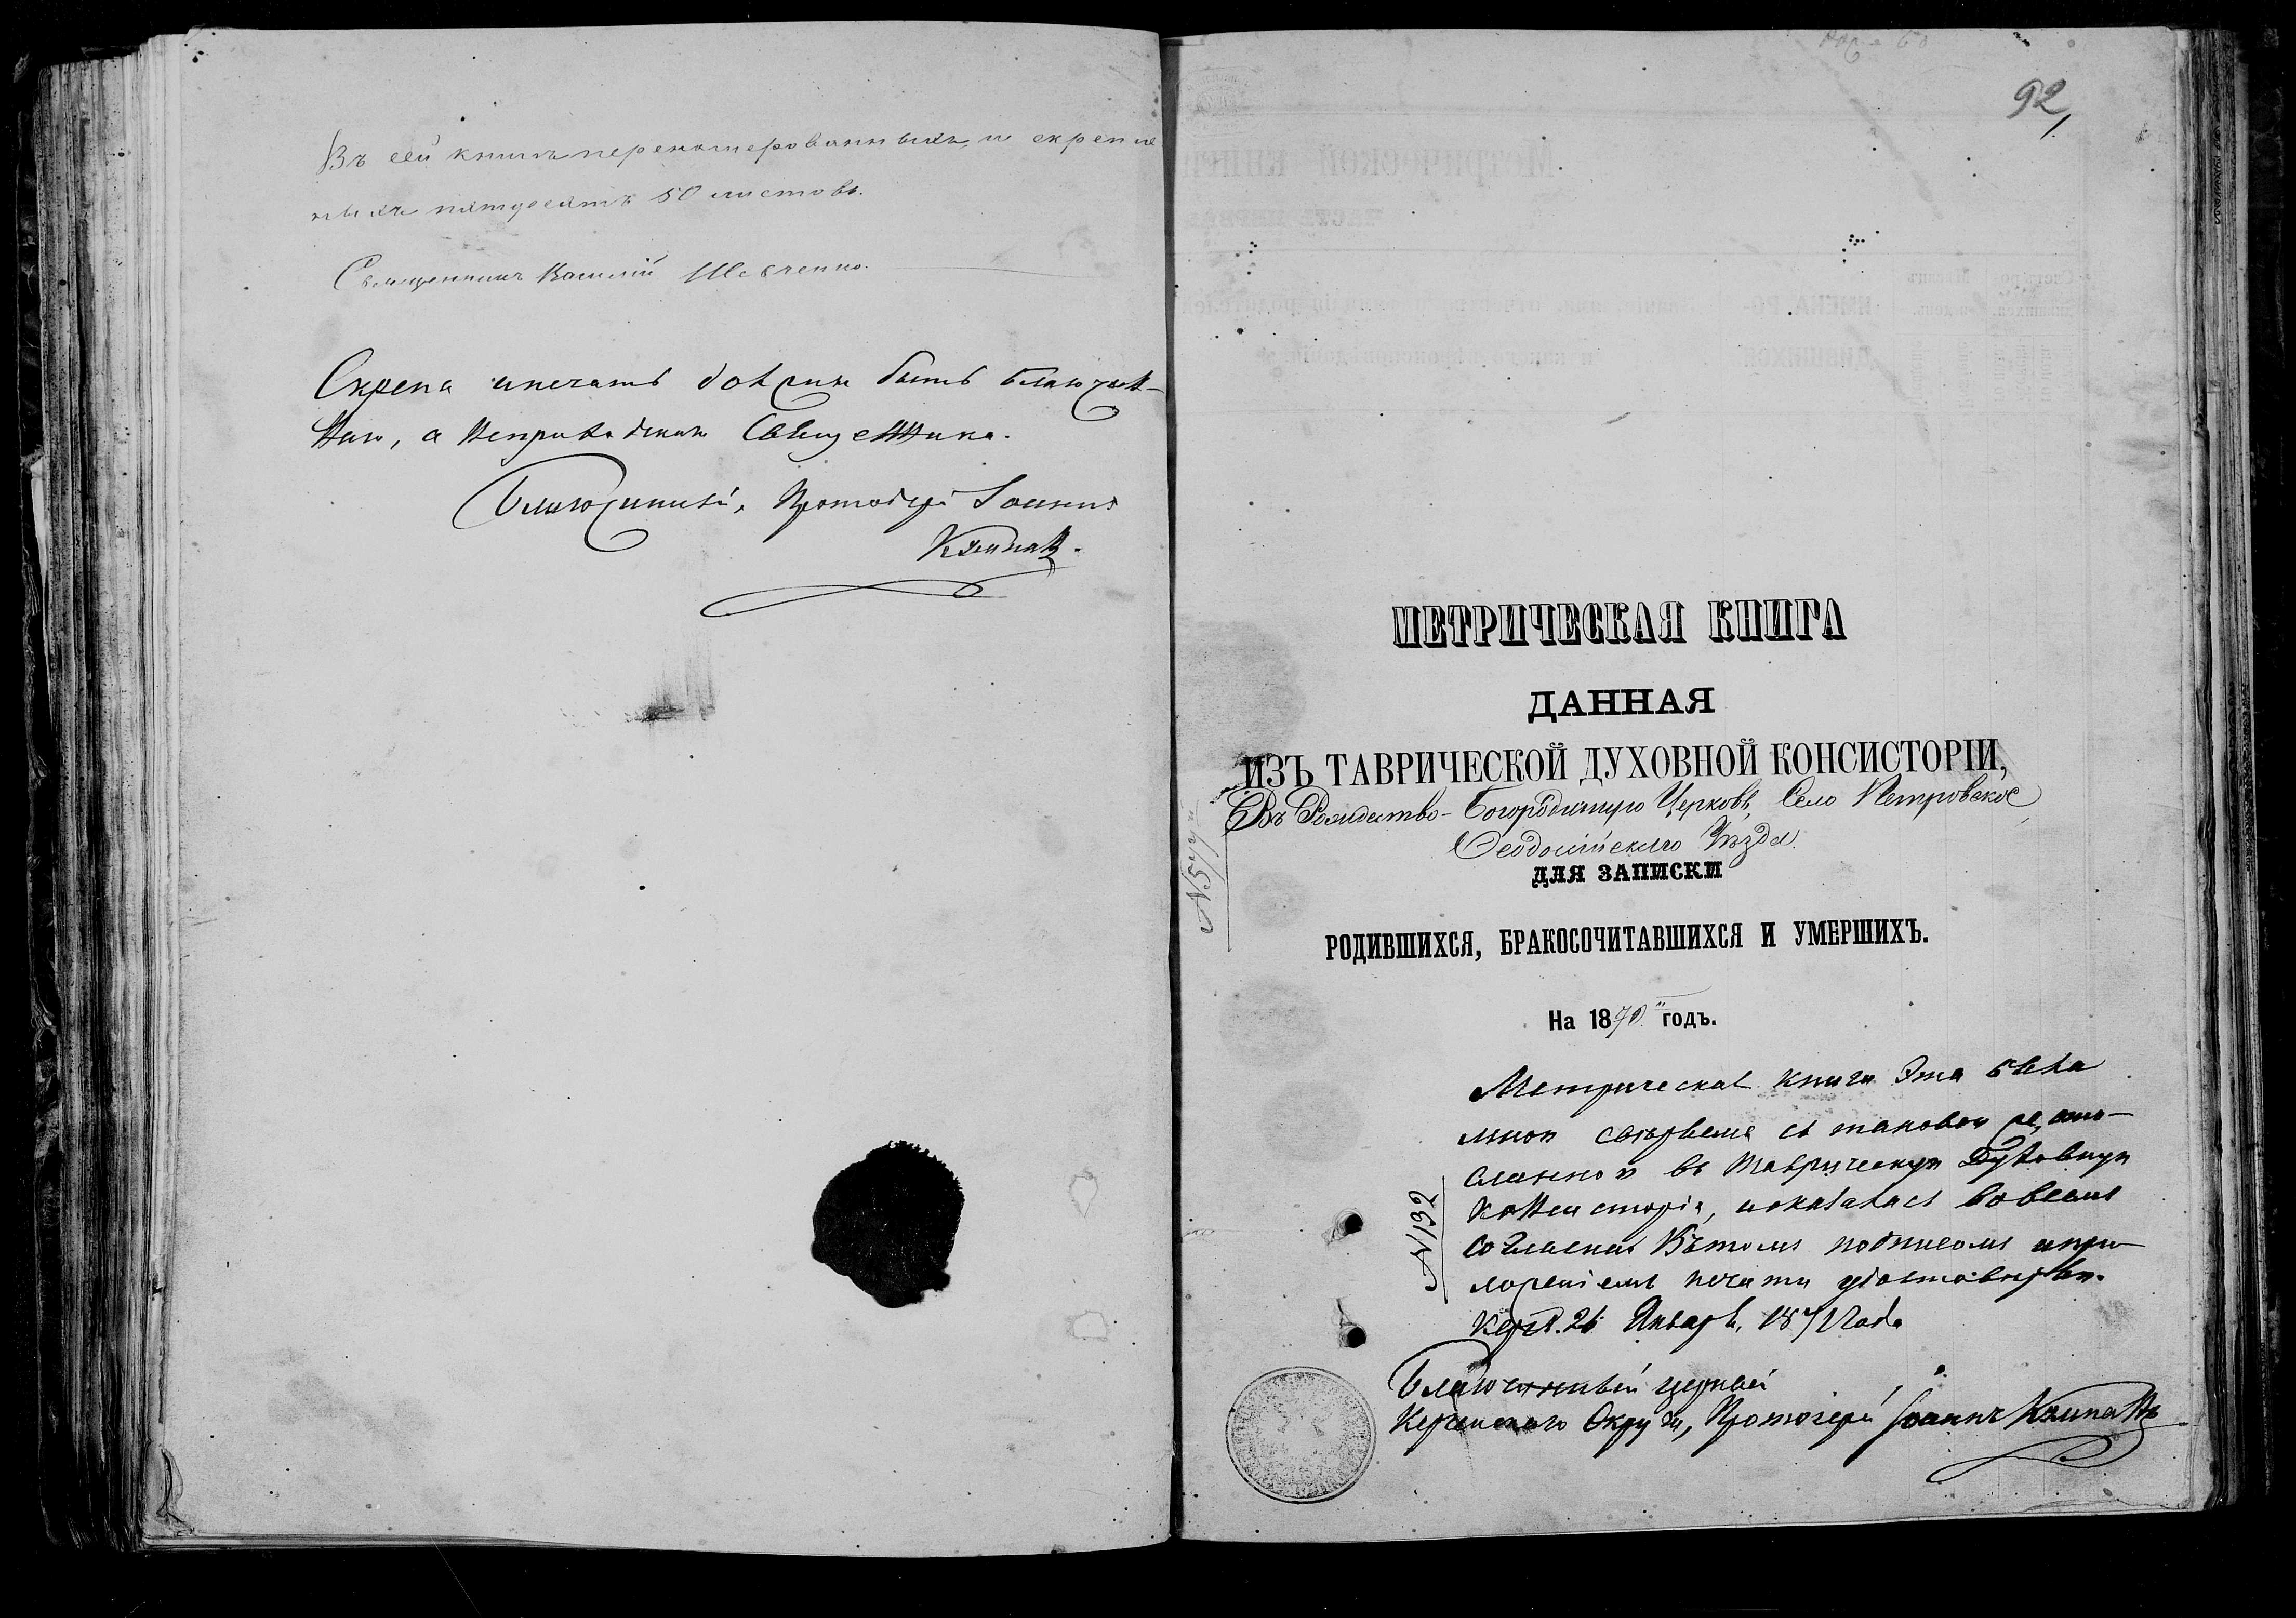 Въ сей книгѣ переномерованныхъ и скрепле
ныхъ пятдесятъ 50 листовъ.
Священникъ Василій Шевченко.
Скрепа и печать должни быть Благочин-
наго, а не приходскаго Священника.
Благочинный, Протоіерей Іоаннъ
92
МЕТРИЧЕСКАЯ КНИГА
ДАННАЯ
ИЗЪ ТАВРИЧЕСКОЙ ДУХОВНОЙ КОНСИСТОРІИ,
Въ Рождество-Богородичную Церковь, Село Петровское
Ѳеодосійскаго Уѣзда.
ДЛЯ ЗАПИСКИ
РОДИВШИХСЯ, БРАКОСОЧИТАВШИХСЯ И УМЕРШИХЪ.
На 1870 годъ.
Метрическая книга эта была
мною свѣрена съ таковою же, ото-
сланною въ Таврическую Духовную
Консисторію, и оказалась во всемъ
согласна. Въ томъ подписомъ и при-
ложеніемъ печати удостовѣряю.
Керчь. 26 Января, 1871 года
Благочинный церквей
Керченскаго Округа, Протоіерей Іоаннъ
№ 132